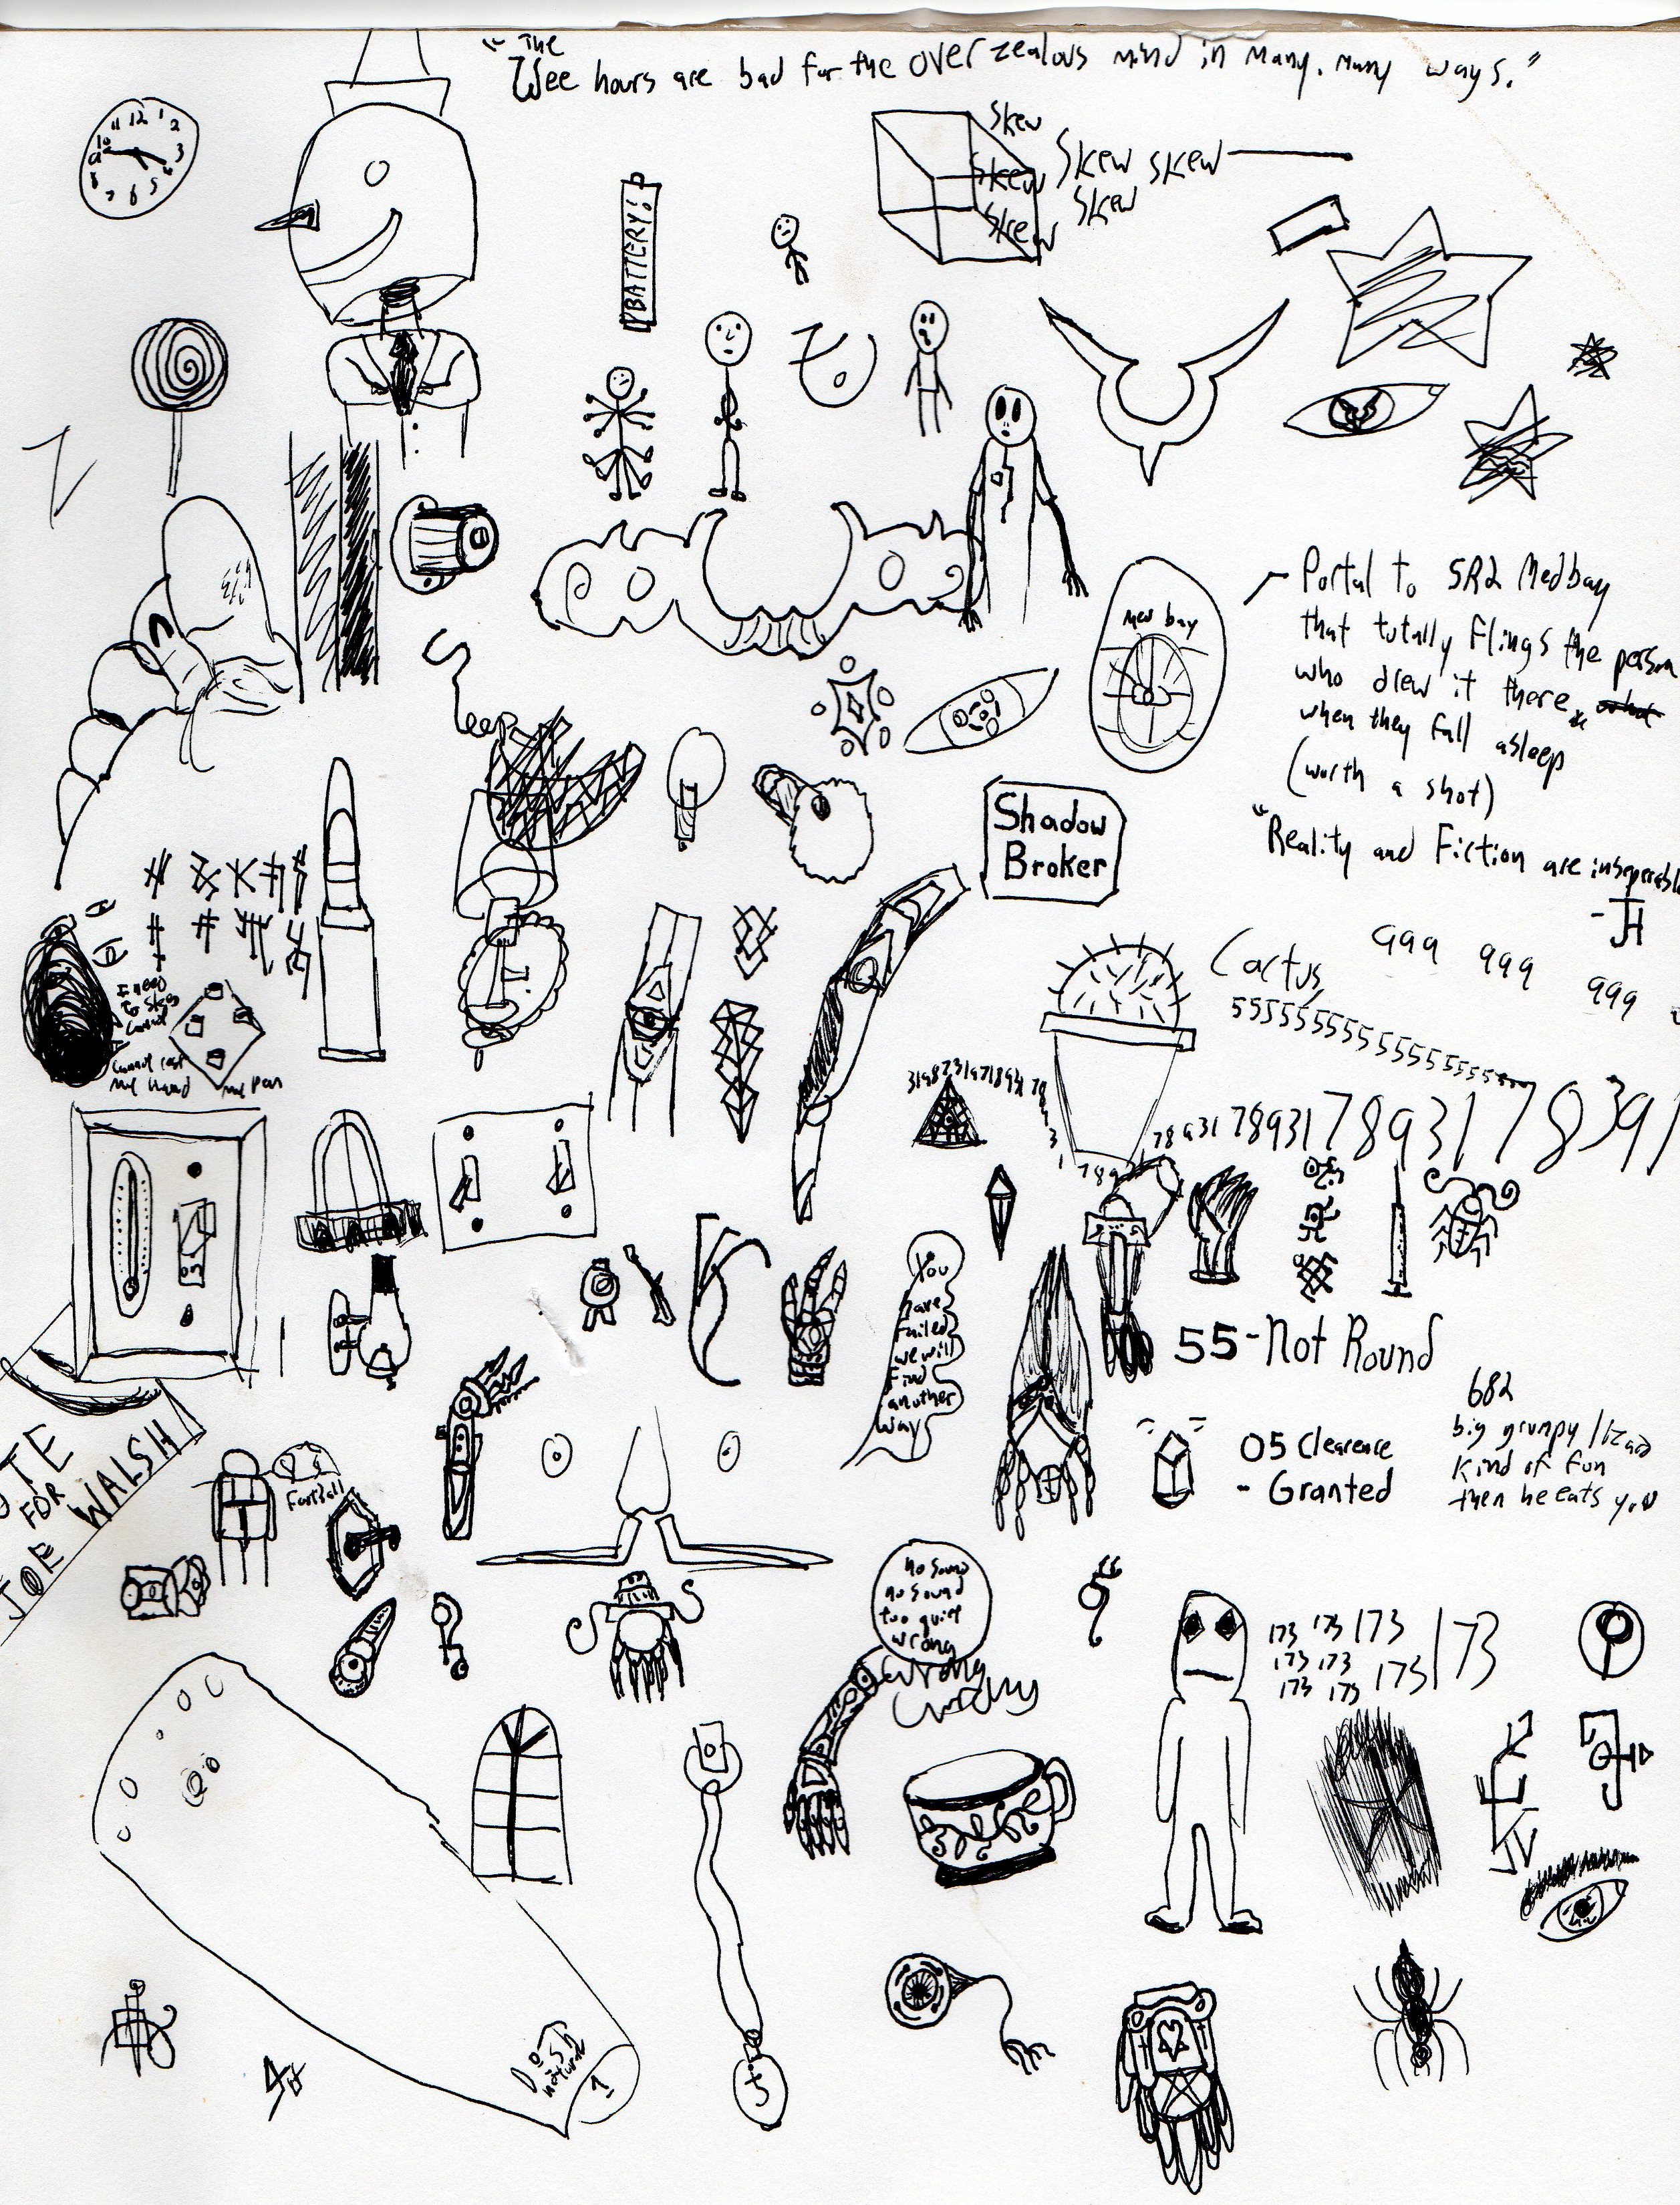 "The
Wee hours are bad for the over zealous mind in many, many ways."
11 12 1 2
10
9 3
8
7 6 5
Skew
Skew Skew Skew
Skew Skew
BATTERY!
Med bay
Portal to SR2 Medbay
that totally flings the person
who drew it there
when they fall asleep
(worth a shot)
Shadow
Broker
"Reality and Fiction are
- JH
Cactus
999 999 999
I need
to sleep
cannot
cannot rest
my hand
my pen
78931 78931 78931 78391
ON
You
have
failed
we will
find
another
way
55-Not Round
682
big grumpy lizard
kind of fun
then he eats you
05 Clearence
- Granted
OTE
FOR
JOE WALSH
Football
no sound
no sound
too quiet
wrong
wrong
wrong
173 173 173 173
173 173 173
173 173
natural
1
5